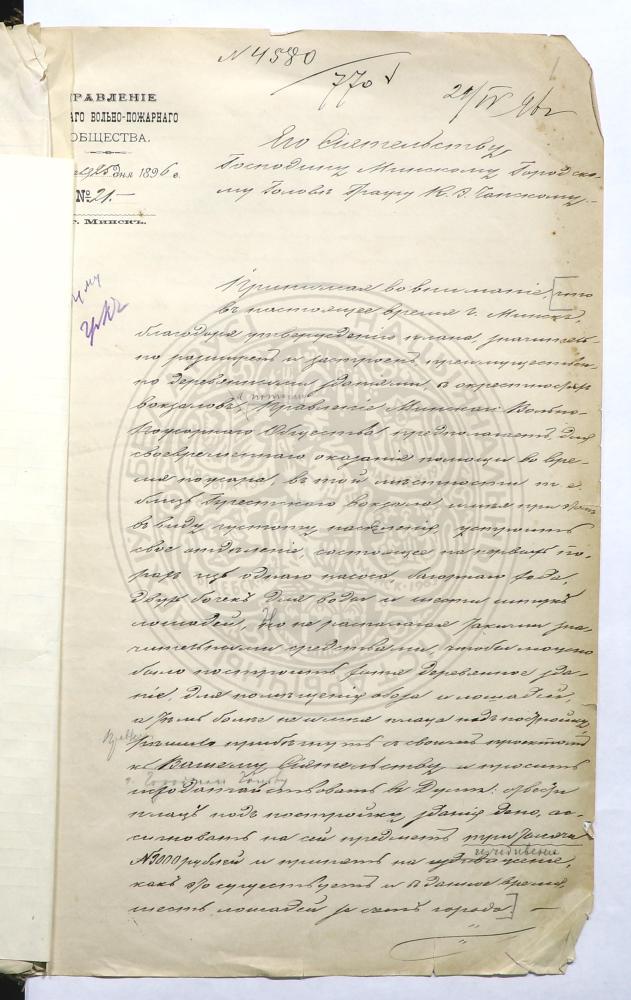 N 4580
770
21/IV 96 г
РАВЛЕНІЕ
АГО ВОЛЬНО-ПОЖАРНАГО
ОБЩЕСТВА.
25 дня 1896 г.
№ 21.—
г. Минскъ.
Его Сіятельству
Господину Минскому Городско-
му Головѣ Графу К. Э. Чапскому.
Принимая во вниманіе, [что
въ настоящее время г. Минскъ,
благодаря утвержденію плана, значитель-
но разширенъ и застроенъ преимуществен-
но деревянными зданіями, въ окрестностяхъ
вокзаловъ, Правленіе Минскаго Вольно-
Пожарнаго Общества предполагаетъ, для
своевременнаго оказанія помощи во вре-
мя пожара, въ той мѣстности т. е.
близъ Брестскаго вокзала имѣя при томъ
въ виду густоту населенія, устроить
свое отдѣленіе, состоящее на первыхъ по-
рахъ изъ одного насоса, багорнаго хода,
двухъ бочекъ для воды и шести штукъ
лошадей. Но не располагая такими зна-
чительными средствами, чтобы можно
было построить хотя деревянное зда-
ніе, для помѣщенія обоза и лошадей,
а тѣмъ болѣе не имѣя плаца подъ постройку,
рѣшило прибѣгнуть съ своимъ проектомъ
къ Вашему Сіятельству и просить
исходатайствовать въ Думѣ: отвести
плацъ подъ постройку зданія депо, ас-
сигновать на сей предметъ три тысячи
№ 3000 рублей и принять на
иждивеніе
какъ это существуетъ и въ данное время,
шесть лошадей за счетъ города.] —